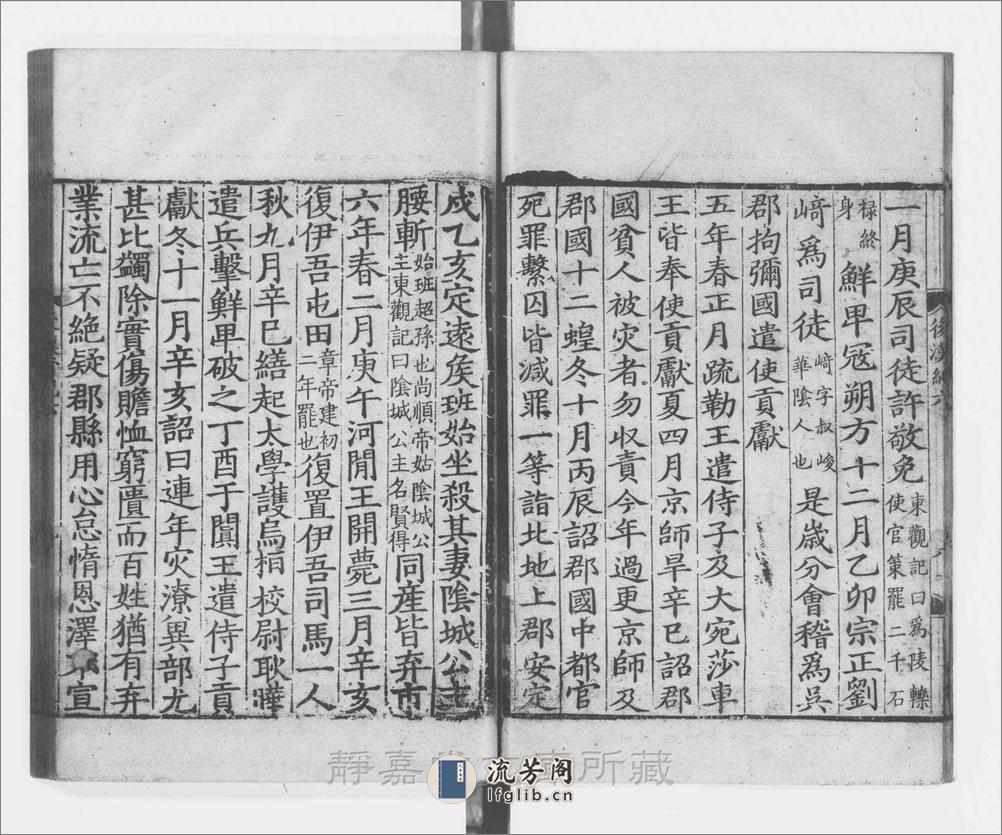 一月庚辰司徒許敬免東觀記曰爲陵轢使官策罷二千石
禄終身鮮卑寇朔方十二月乙卯宗正劉
崎爲司徒崎字叔峻華陰人也是歲分會稽爲吳
郡拘彌國遣使貢獻
五年春正月疏勒王遣侍子及大宛莎車
王皆奉使貢獻夏四月京師旱辛巳詔郡
國貧人被灾者勿収責今年過更京師及
郡國十二蝗冬十月丙辰詔郡國中都官
死罪繫囚皆减罪一等詣北地上郡安定
戍乙亥定遠侯班始坐殺其妻陰城公主
腰斬始班超孫也尚順帝姑陰城公主東觀記曰陰城公主名賢得同産皆弃市
六年春二月庚午河閒王開薨三月辛亥
復伊吾屯田章帝建初二年罷也復置伊吾司馬一人
秋九月辛巳繕起太學護烏桓校尉耿曄
遣兵擊鮮卑破之丁酉于闐王遣侍子貢
獻冬十一月辛亥詔曰連年灾潦兾部尤
甚比蠲除實傷贍恤窮匱而百姓猶有弃
業流亡不絶疑郡縣用心怠惰恩澤不宣
後漢紀六
靜嘉堂文庫所藏
流芳阁
lfglib.cn